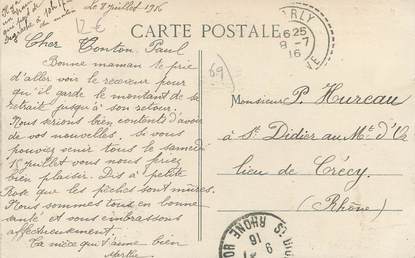 le 8 juillet 1916
12 €
CARTE POSTALE
69
Cher Tonton Paul
Bonne maman te prie
d'aller voir le receveur pour
qu'il garde le montant de sa
retrait jusqu'à son retour.
Nous serions bien contents d'avoir
de vos nouvelles. Si vous
pouviez venir tous le samedi
15 juillet vous nous feriez
bien plaisir. Dis à petite
Rose que les pêches sont mûres.
Nous sommes tous en bonne
santé et vous embrassons
affectueusement.
Ta nièce qui t'aime bien
RLY
6 25
8 - 7
16
Monsieur P. Hureau
à St Didier au Mt d'Or
lieu de Crécy
(Rhône)
RHONE
9
16